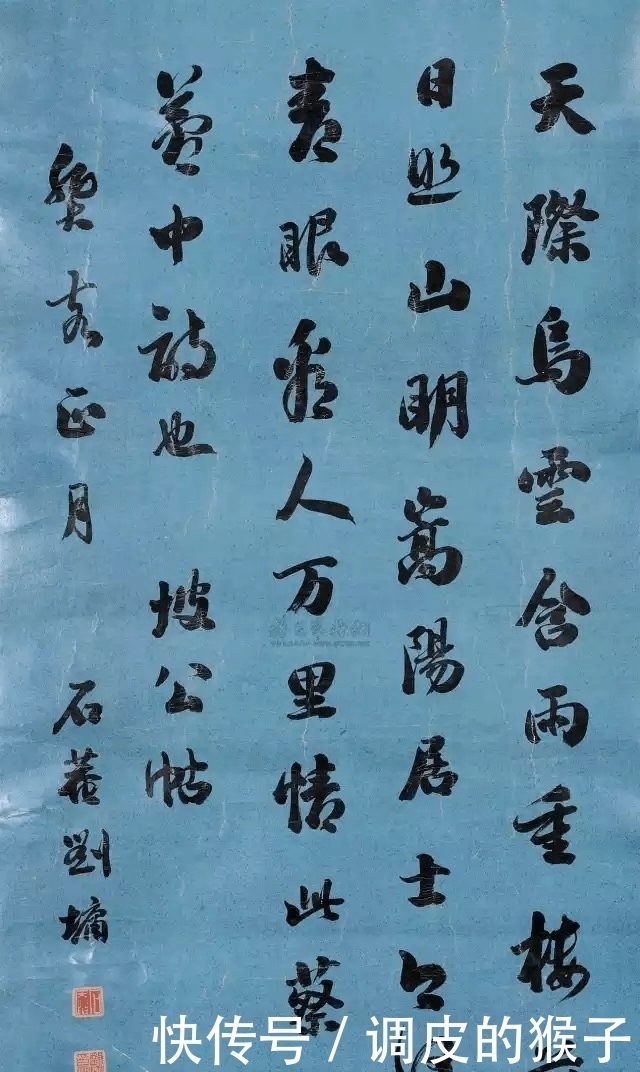 天際烏雲含雨重樓
日照山明嵩陽居士今
青眼看人万里情此蔡
夢中詩也 坡公帖
癸亥正月 石菴劉墉
快传号 / 调皮的猴子